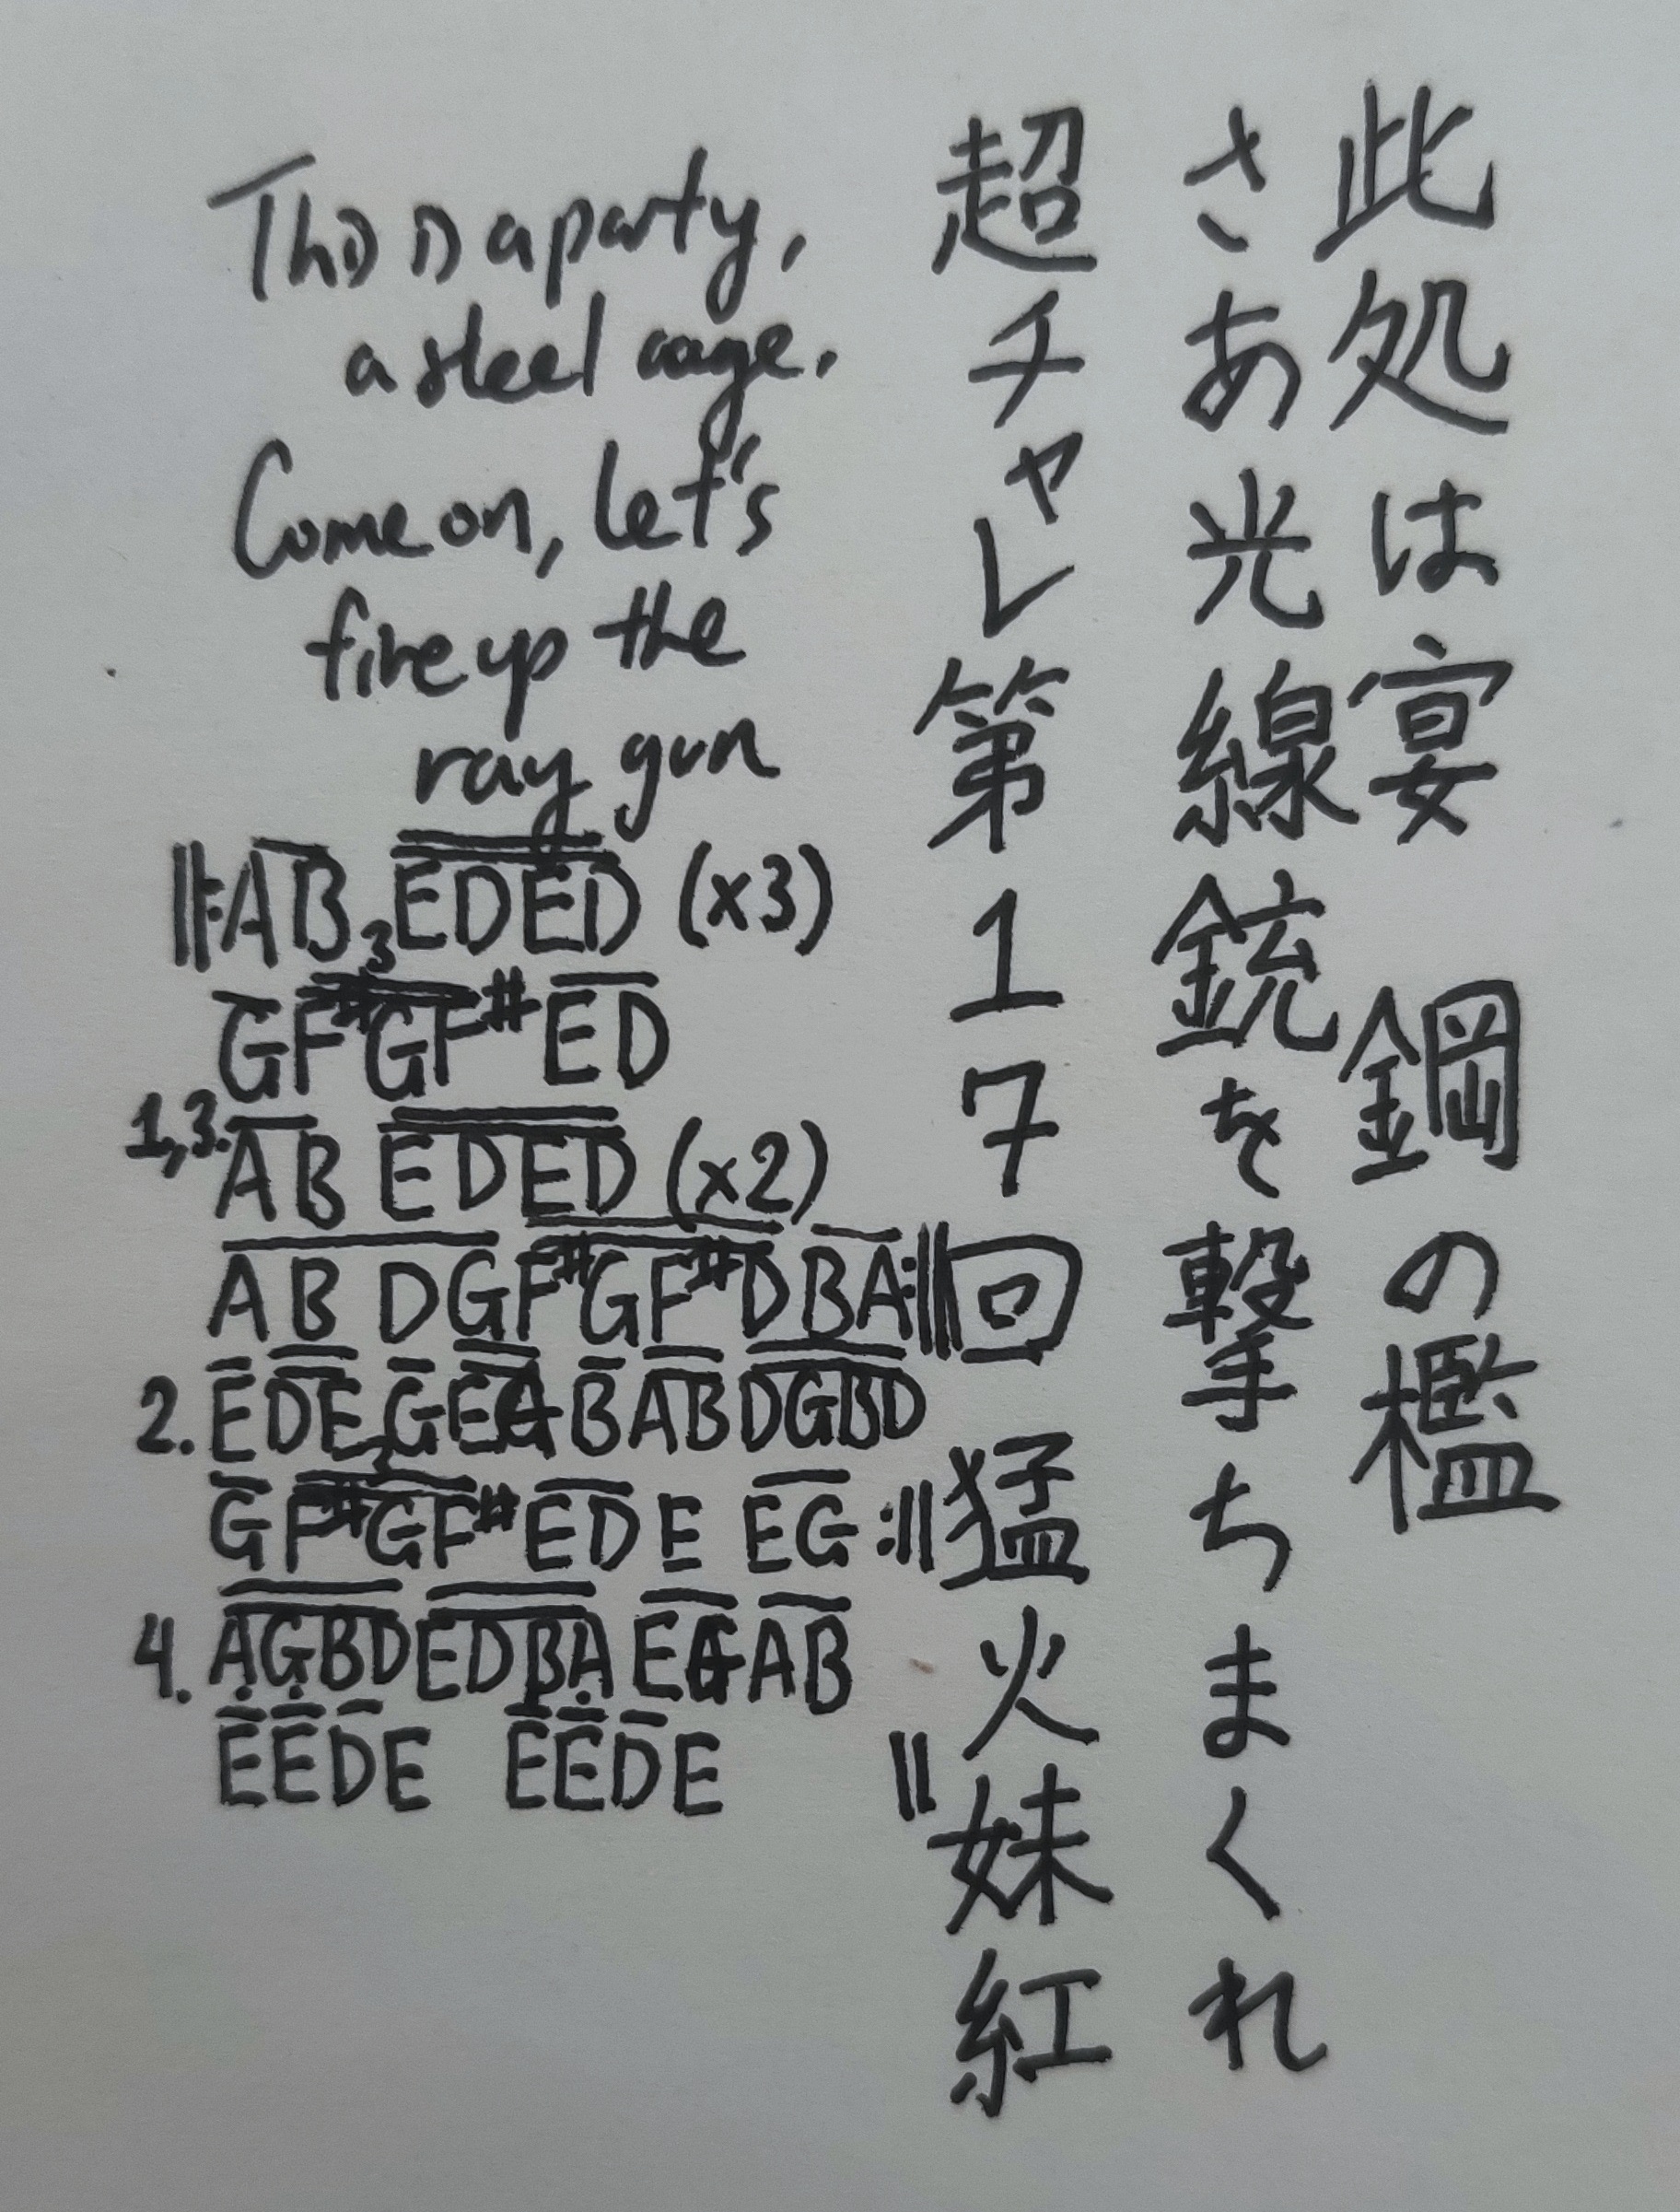 此処は宴 鋼の檻
さあ光線銃を撃ちまくれ
超チャレ第17回 猛火妹紅
This is a party,
a steel cage.
Come on, let's
fire up the
ray gun
‖:AB EDED (x3)
3
GF#GF# ED
1,3. AB EDED (x2)
AB DGF#GF#DBA:‖
2. EDE GEG BABDGBD
3
GF#GF# EDE EG:‖
4. AGBDEDBA EGAB
EEDE EEDE ‖